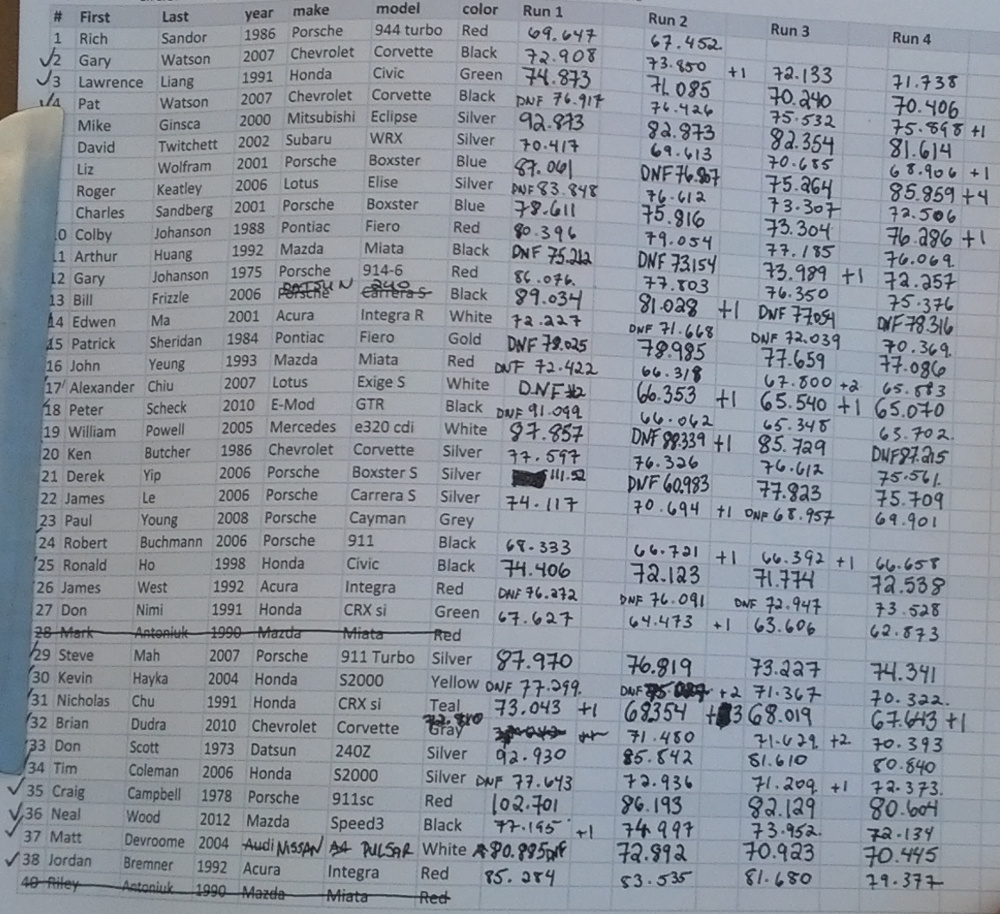 # First Last year make model color Run 1 Run 2 Run 3 Run 4
1 Rich Sandor 1986 Porsche 944 turbo Red 69.647 67.452
2 Gary Watson 2007 Chevrolet Corvette Black 72.908 73.850 +1 72.133 71.738
3 Lawrence Liang 1991 Honda Civic Green 74.873 71.085 70.240 70.406
4 Pat Watson 2007 Chevrolet Corvette Black DNF 76.917 76.426 75.532 75.898 +1
Mike Ginsca 2000 Mitsubishi Eclipse Silver 92.873 82.873 82.354 81.614
David Twitchett 2002 Subaru WRX Silver 70.417 69.613 70.685 68.906 +1
Liz Wolfram 2001 Porsche Boxster Blue 87.061 DNF 76.807 75.264 85.959 +4
Roger Keatley 2006 Lotus Elise Silver DNF 83.848 76.612 73.307 72.506
Charles Sandberg 2001 Porsche Boxster Blue 78.611 75.816 73.304 76.286 +1
10 Colby Johanson 1988 Pontiac Fiero Red 80.396 79.054 77.185 76.069
11 Arthur Huang 1992 Mazda Miata Black DNF 75.212 DNF 73154 73.989 +1 72.257
12 Gary Johanson 1975 Porsche 914-6 Red 86.076 77.803 76.350 75.376
13 Bill Frizzle 2006 Porsche DATSUN Carrera S 240 Black 89.034 81.028 +1 DNF 77054 DNF 78.316
14 Edwen Ma 2001 Acura Integra R White 72.227 DNF 71.668 DNF 72.039 70.369
15 Patrick Sheridan 1984 Pontiac Fiero Gold DNF 79.025 78.985 77.659 77.086
16 John Yeung 1993 Mazda Miata Red DNF 72.422 66.318 67.800 +2 65.583
17 Alexander Chiu 2007 Lotus Exige S White DNF 66.353 +1 65.540 +1 65.070
18 Peter Scheck 2010 E-Mod GTR Black DNF 91.099 66.062 65.348 63.702
19 William Powell 2005 Mercedes e320 cdi White 97.857 DNF 88339 +1 85.729 DNF 87.215
20 Ken Butcher 1986 Chevrolet Corvette Silver 77.597 76.326 76.612 75.561
21 Derek Yip 2006 Porsche Boxster S Silver 111.52 DNF 60.983 77.823 75.709
22 James Le 2006 Porsche Carrera S Silver 74.117 70.694 +1 DNF 68.957 69.901
23 Paul Young 2008 Porsche Cayman Grey
24 Robert Buchmann 2006 Porsche 911 Black 68.333 66.721 +1 66.392 +1 66.658
25 Ronald Ho 1998 Honda Civic Black 74.406 72.123 71.774 72.538
26 James West 1992 Acura Integra Red DNF 76.272 DNF 76.091 DNF 72.947 73.528
27 Don Nimi 1991 Honda CRX si Green 67.627 64.473 +1 63.606 62.873
28 Mark Antoniuk 1990 Mazda Miata Red
29 Steve Mah 2007 Porsche 911 Turbo Silver 87.970 76.819 73.227 74.341
30 Kevin Hayka 2004 Honda S2000 Yellow DNF 77.299 DNF +2 71.367 70.322
31 Nicholas Chu 1991 Honda CRX si Teal 73.043 +1 68354 +3 68.019 67.643 +1
32 Brian Dudra 2010 Chevrolet Corvette Gray 72.810 71.480 71.629 +2 70.393
33 Don Scott 1973 Datsun 240Z Silver 92.930 85.842 81.610 80.840
34 Tim Coleman 2006 Honda S2000 Silver DNF 77.643 72.936 71.209 +1 72.373
35 Craig Campbell 1978 Porsche 911sc Red 102.701 86.193 82.129 80.604
36 Neal Wood 2012 Mazda Speed3 Black 77.195 +1 74.997 73.952 72.134
37 Matt Devroome 2004 Audi NISSAN A4 PULSAR White 80.885 DNF 72.892 70.923 70.445
38 Jordan Bremner 1992 Acura Integra Red 85.284 83.535 81.680 79.377
40 Riley Antoniuk 1990 Mazda Miata Red